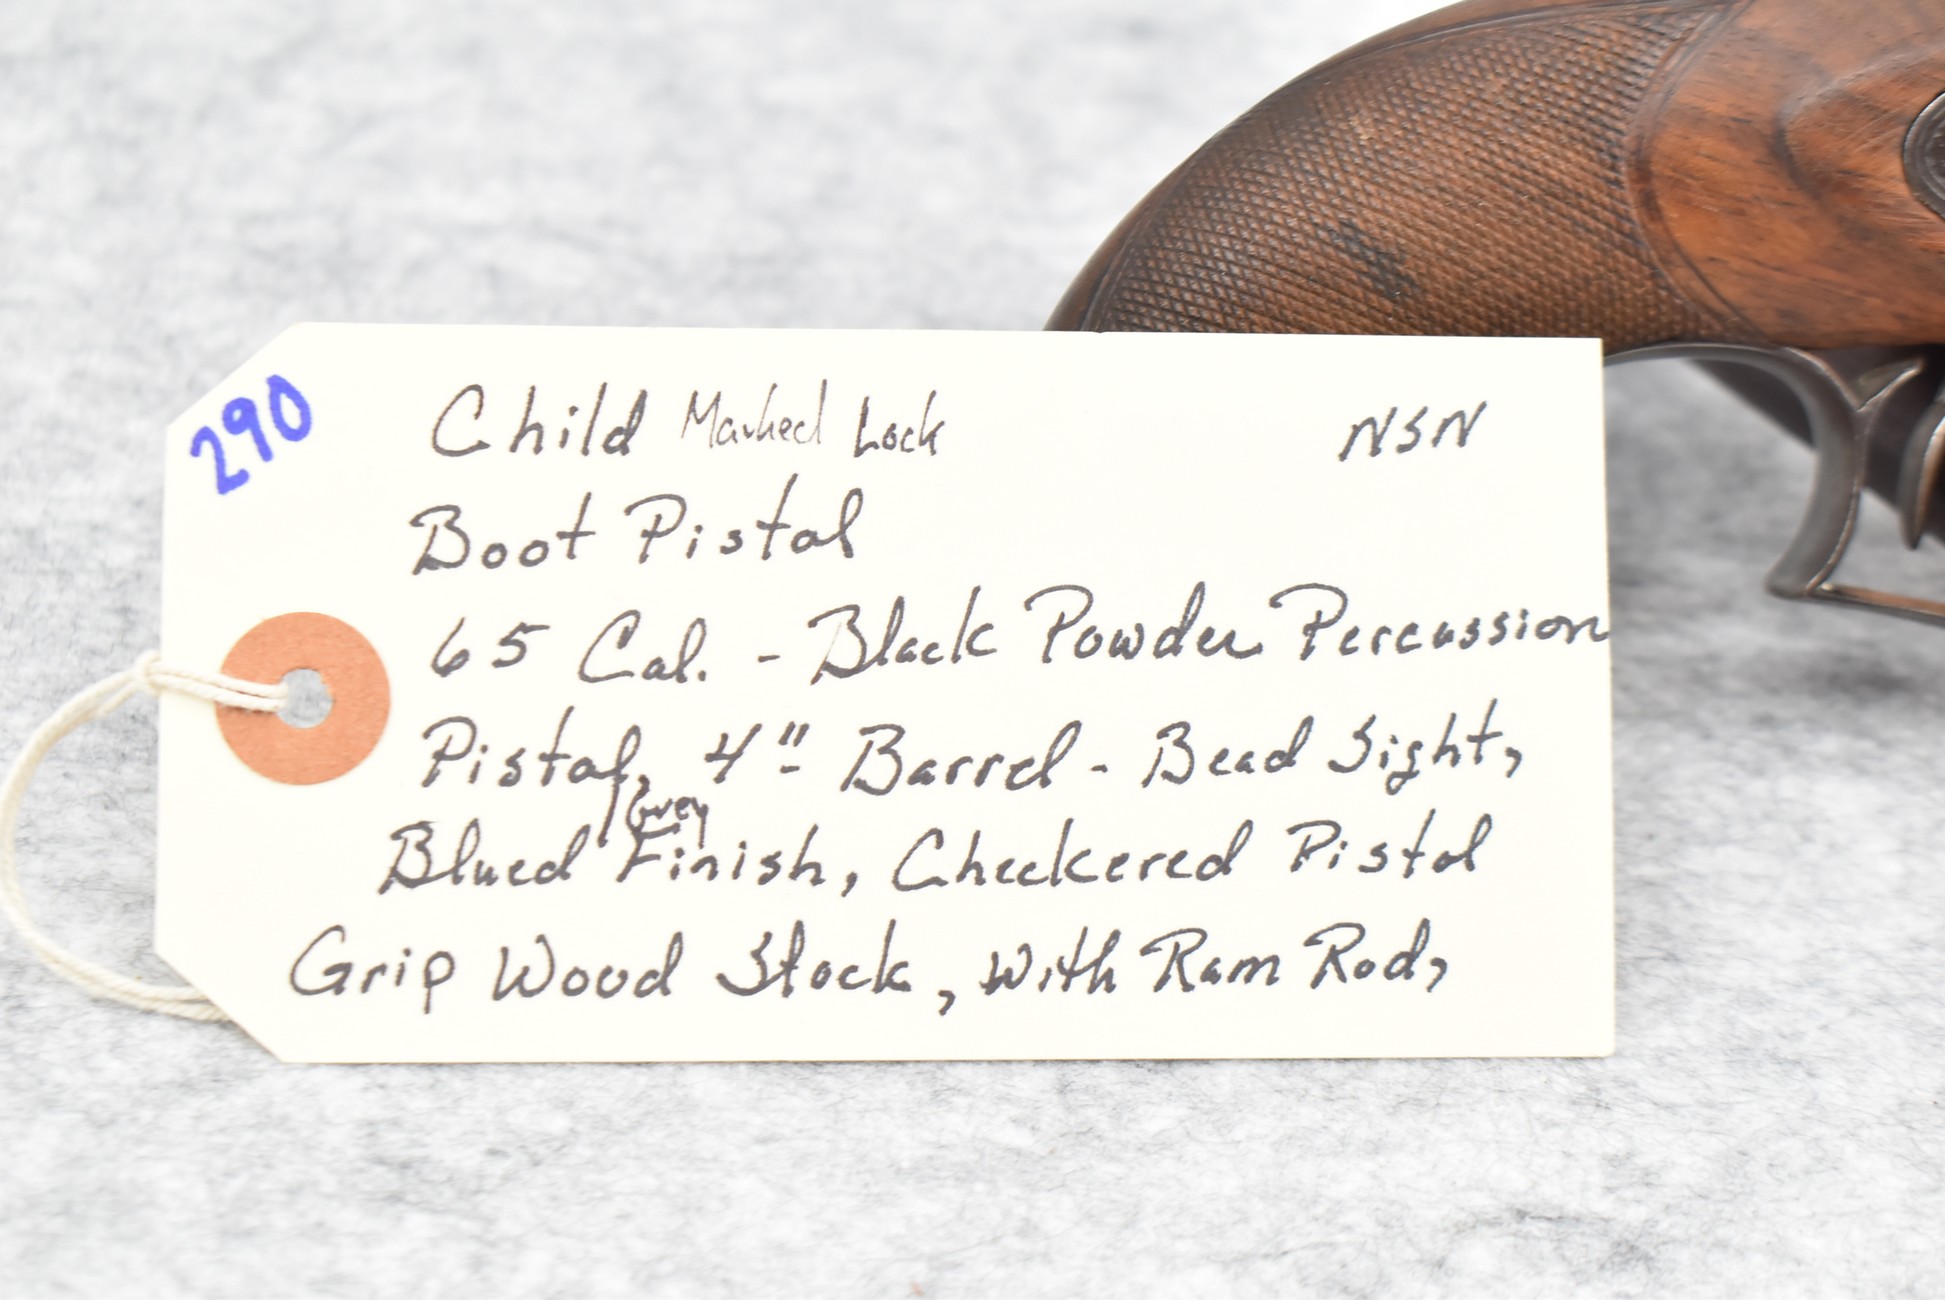 290
Child Marked Lock NSN
Boot Pistol
65 Cal. - Black Powder Percussion
Pistol, 4" Barrel - Bead Sight,
Blued /Grey Finish, Checkered Pistol
Grip Wood Stock, with Ram Rod,